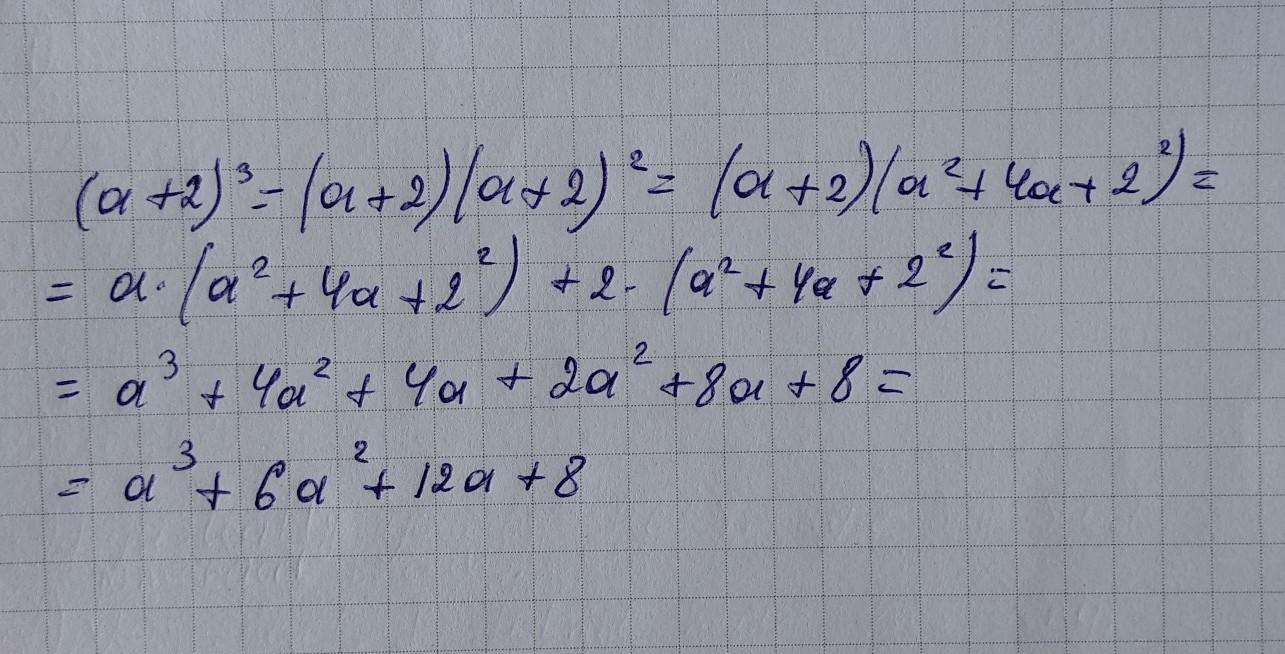 (a+2)³=(a+2)(a+2)²=(a+2)(a²+4a+2²)=
=a·(a²+4a+2²)+2·(a²+4a+2²)=
=a³+4a²+4a+2a²+8a+8=
=a³+6a²+12a+8